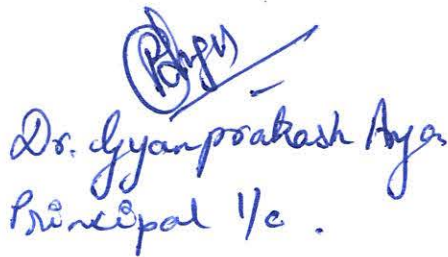 Dr. Gyanprakash Arya
Principal I/c .